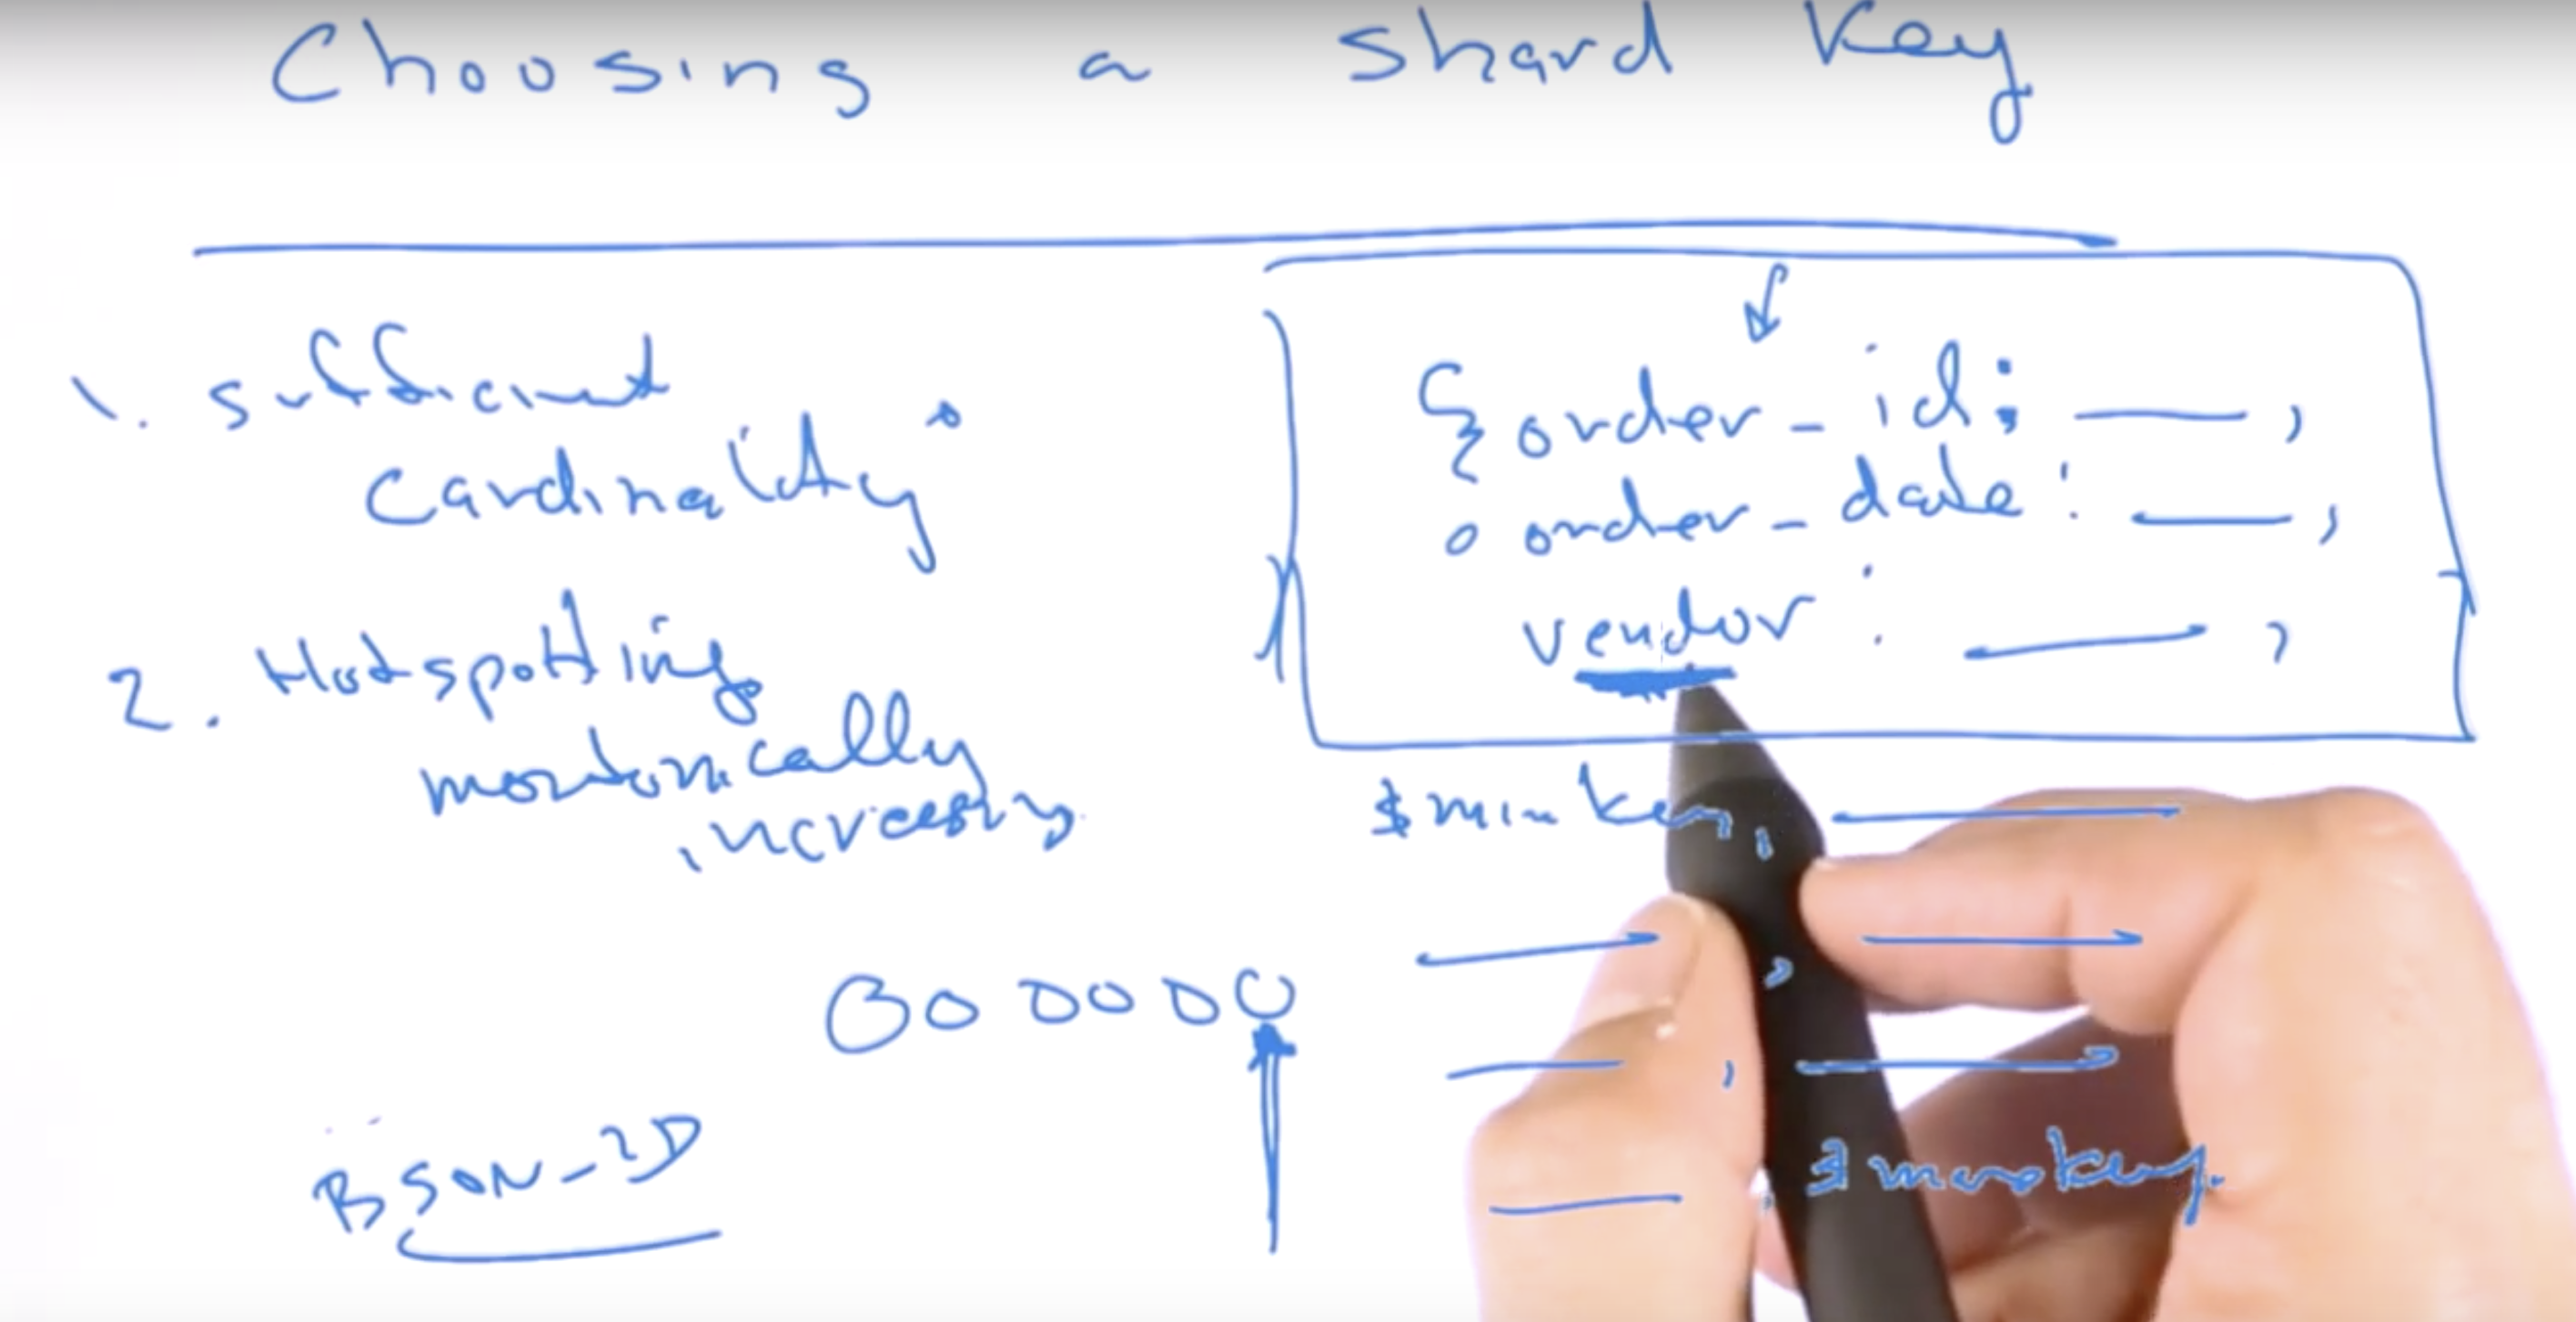 Choosing a shard key
1. sufficient
cardinality
2. Hotspotting
monotonically
increasing
BSON_ID
{order_id: ,
order_date: ,
vendor: ,
$minkey,
, $maxkey.